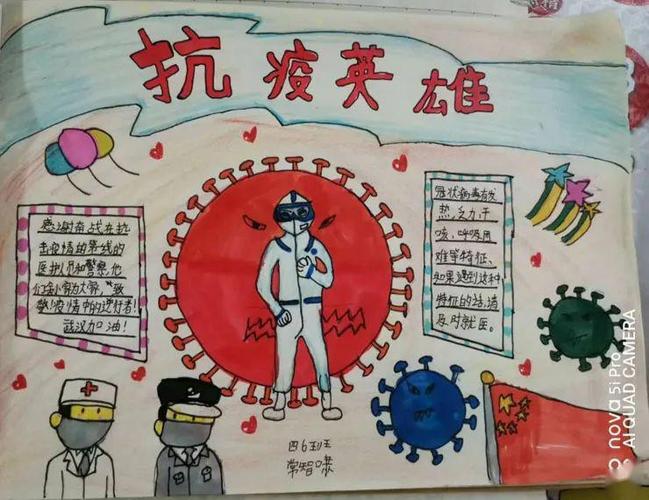 抗疫英雄
感谢奋战在抗
击疫情的第一线的
医护人员和警察,他
们舍小家为大家,致
敬疫情中的逆行者!
武汉加油!
冠状病毒有发
热,乏力,干
咳,呼吸困
难等特征、
如果遇到这种
特征的话,请
及时就医。
四6班
nova 5i Pro
AI QUAD CAMERA